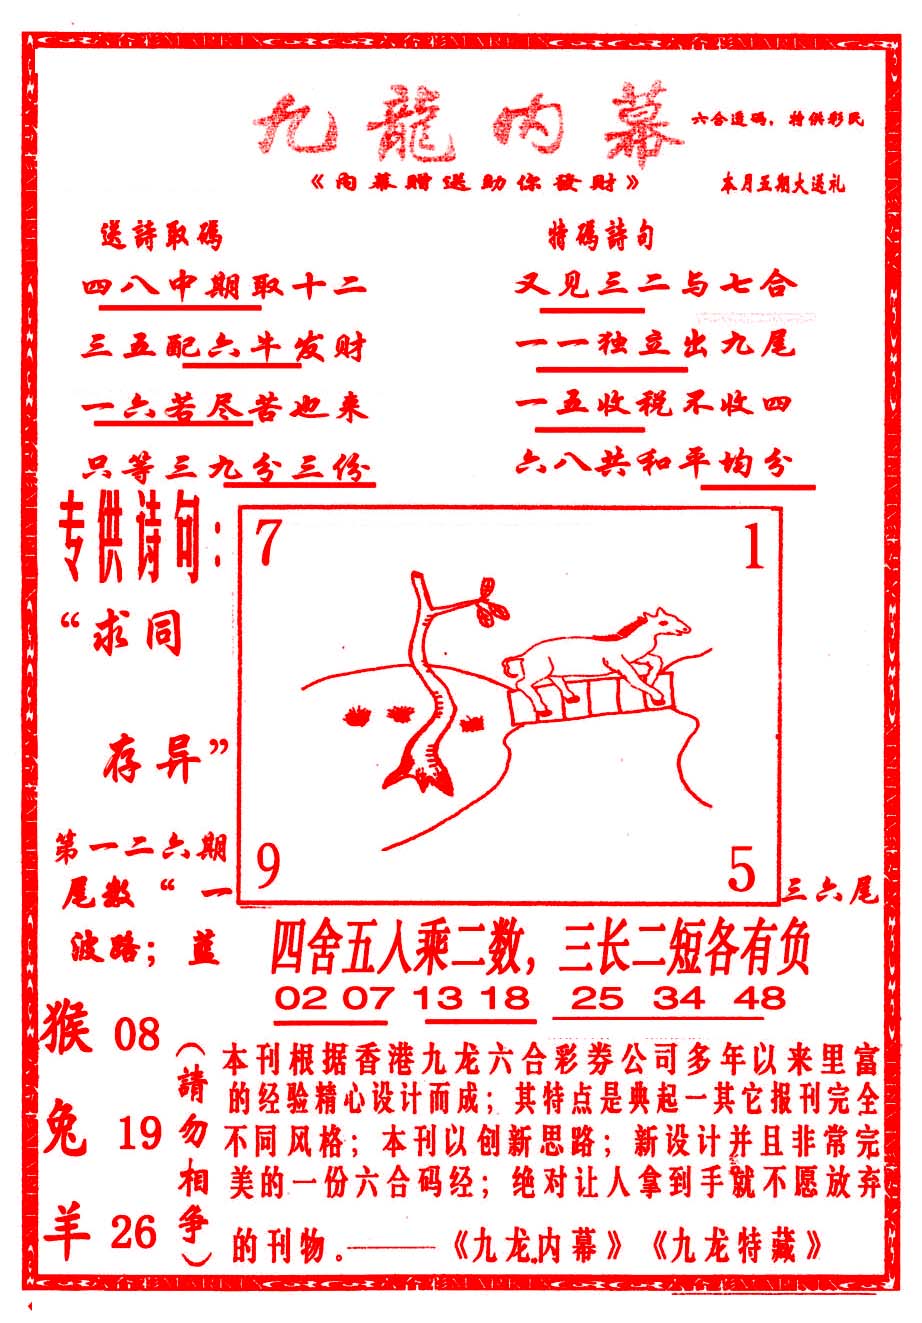 九龍内幕
六合透码，特供彩民
《内幕赠送助你發财》
本月五期大送礼
送詩取碼
四八中期取十二
三五配六牛发财
一六苦尽苦也来
只等三九分三份
特碼詩句
又见三二与七合
一一独立出九尾
一五收税不收四
六八共和平均分
专供诗句：
“求同
存异”
第一二六期
尾数“一
波路；蓝
7
1
9
5
三六尾
四舍五人乘二数，三长二短各有负
02 07 13 18 25 34 48
猴 08
兔 19
羊 26
（請勿相争）
本刊根据香港九龙六合彩劵公司多年以来里富
的经验精心设计而成；其特点是典起一其它报刊完全
不同风格；本刊以创新思路；新设计并且非常完
美的一份六合码经；绝对让人拿到手就不愿放弃
的刊物。——《九龙内幕》《九龙特藏》